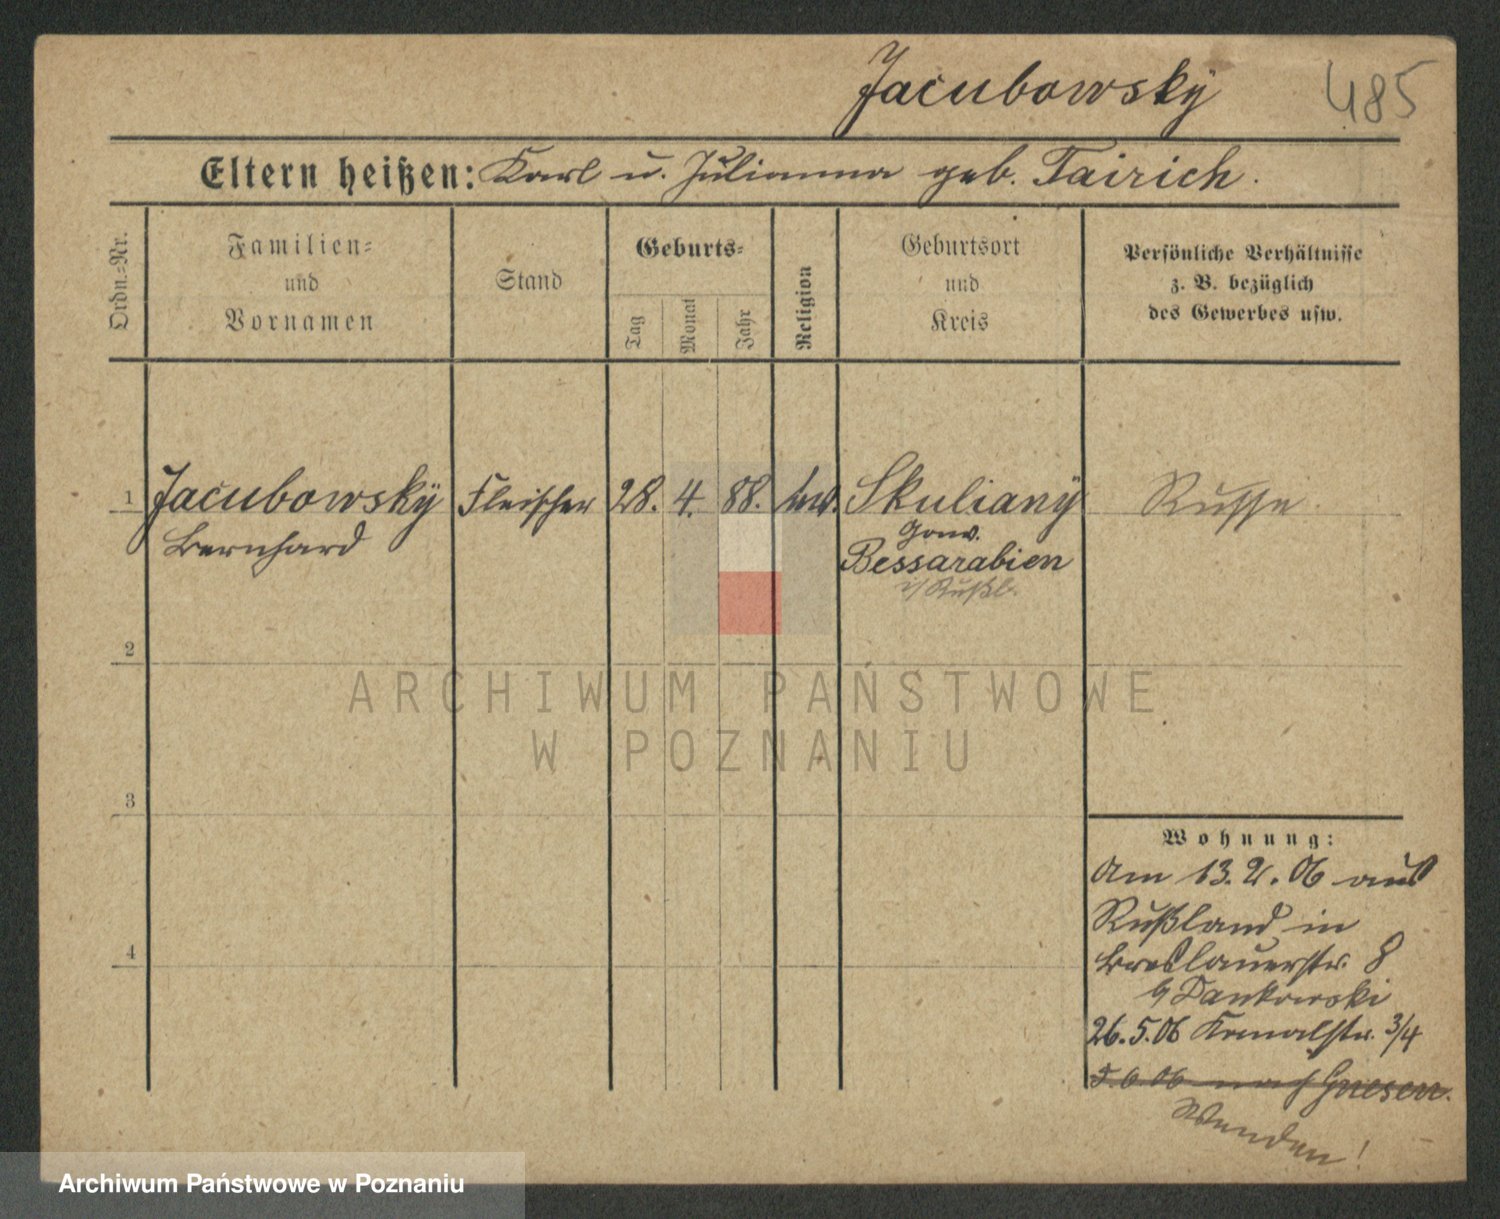 Jacubowskÿ 485
Eltern heißen: Karl u. Julianna geb. Tairich.
Ordn.=Nr.
Familien=
und
Vornamen
Stand
Geburts=
Tag
Monat
Jahr
Religion
Geburtsort
und
Kreis
Persönliche Verhältnisse
z. B. bezüglich
des Gewerbes usw.
1 Jacubowskÿ Fleischer 28. 4. 88. Skulianÿ Russe
Bernhard
Gouv.
Bessarabien
i/ Rußl.
2
3
4
Wohnung:
Am 13. 2. 06 aus
Rußland in
Breslauerstr. 8
b/ Dankowski
26. 5. 06 3/4
5. 6. 06 nach Gnesen.
Wenden!
ARCHIWUM PAŃSTWOWE
W POZNANIU
Archiwum Państwowe w Poznaniu